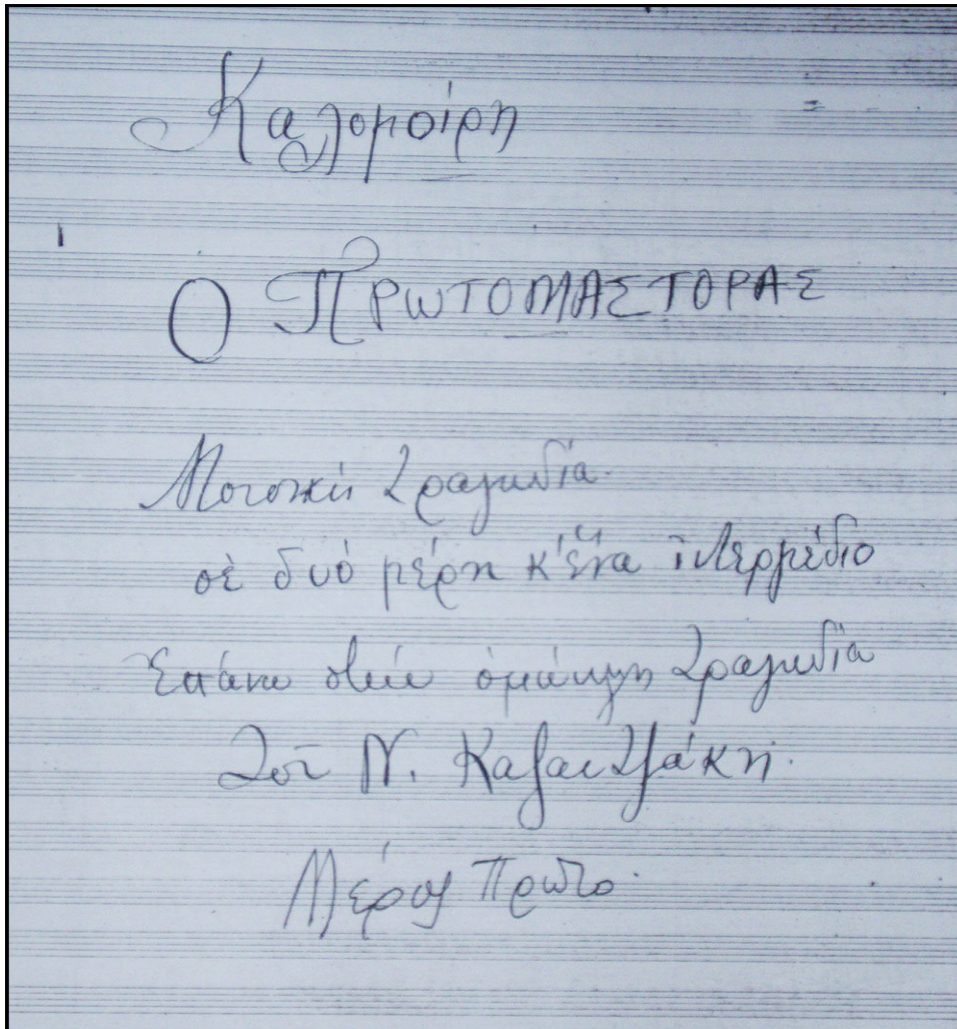 Καλομοίρη
Ο ΠΡΩΤΟΜΑΣΤΟΡΑΣ
Μουσική Τραγωδία.
σὲ δυὸ μέρη κ' ἕνα ἰντερμέδιο
Ἐπάνω στὴν ὁμώνυμη τραγωδία
τοῦ Ν. Καζαντζάκη.
Μέρος Πρῶτο.